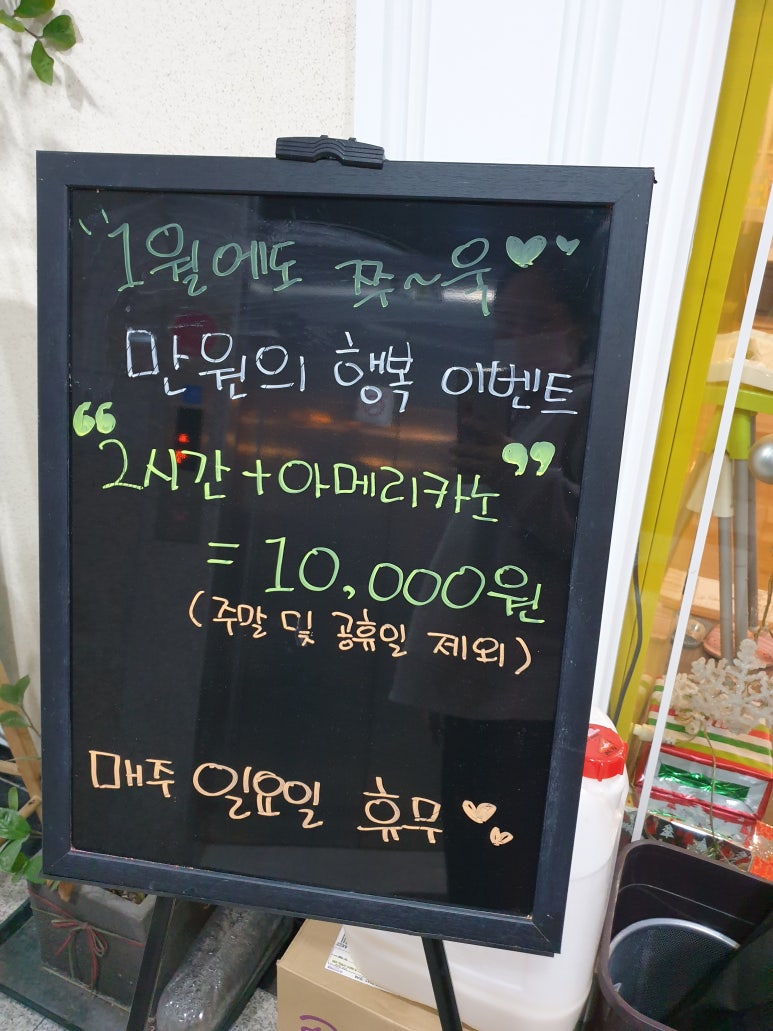 "1월에도 쭈~욱♥♥
만원의 행복 이벤트
“2시간+아메리카노”
= 10,000원
(주말 및 공휴일 제외)
매주 일요일 휴무♥♥